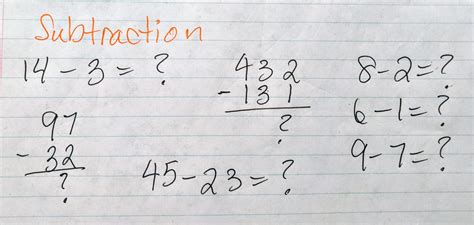 Subtraction
14 - 3 = ?
432
- 131
?
8 - 2 = ?
6 - 1 = ?
9 - 7 = ?
97
- 32
?
45 - 23 = ?